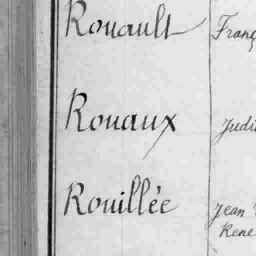 Rouault Franç
Rouaux Judi
Rouillée Jean
René